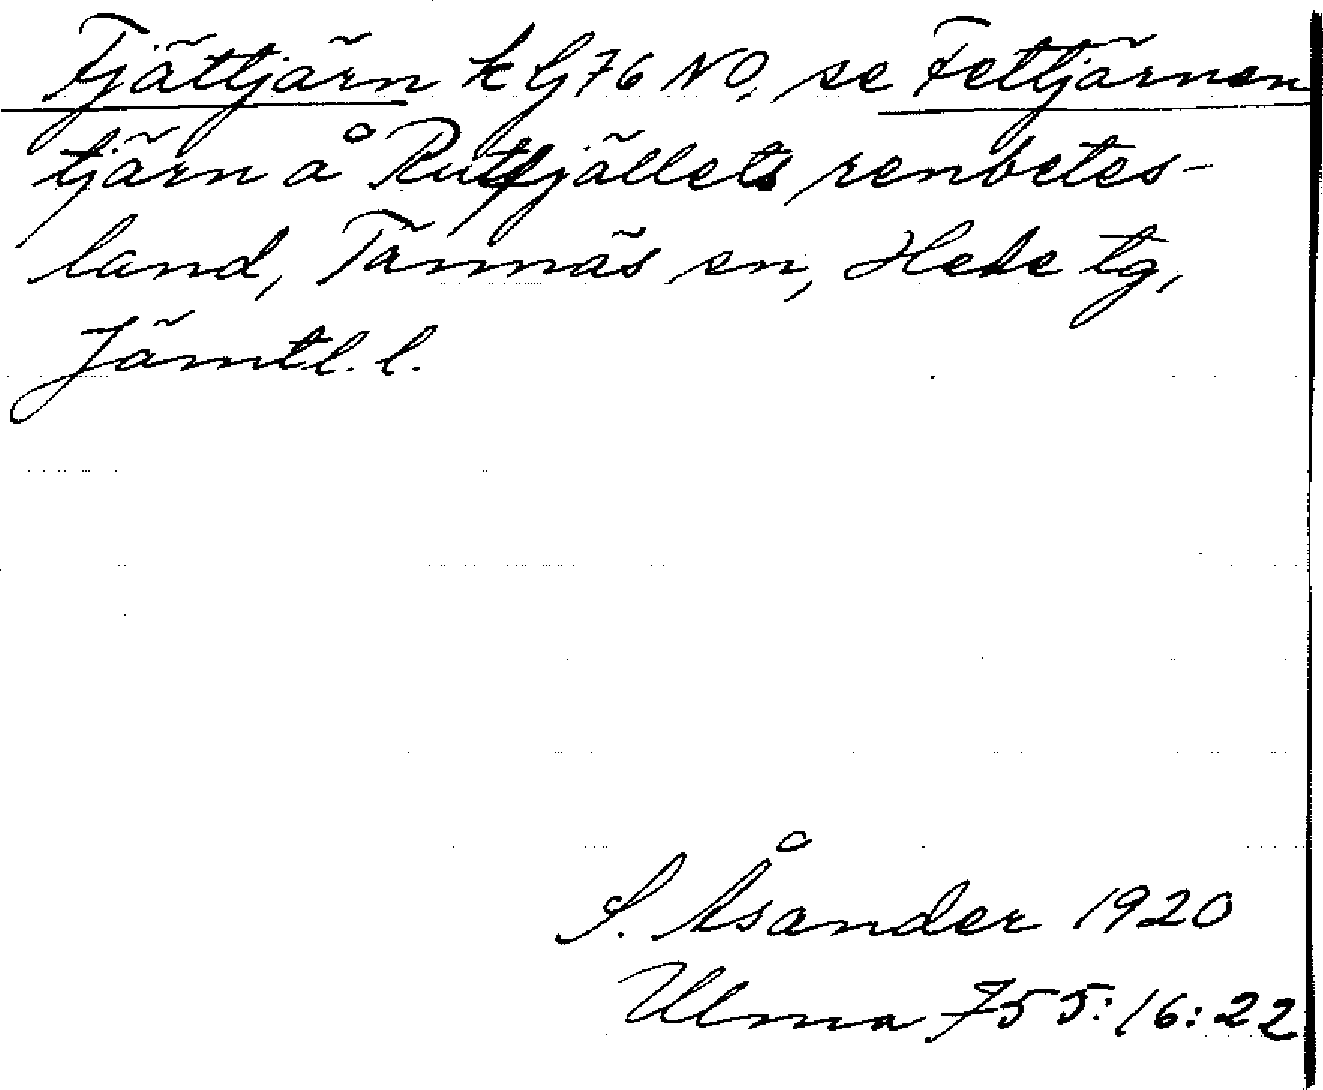 Fjättjärn k Gj76 NO, se Fettjärnen
tjärn å Rutfjällets renbetes-
land, Tännäs sn, Hede tg,
Jämtl. l.
S. Åsander 1920
Ulma 755:16:22